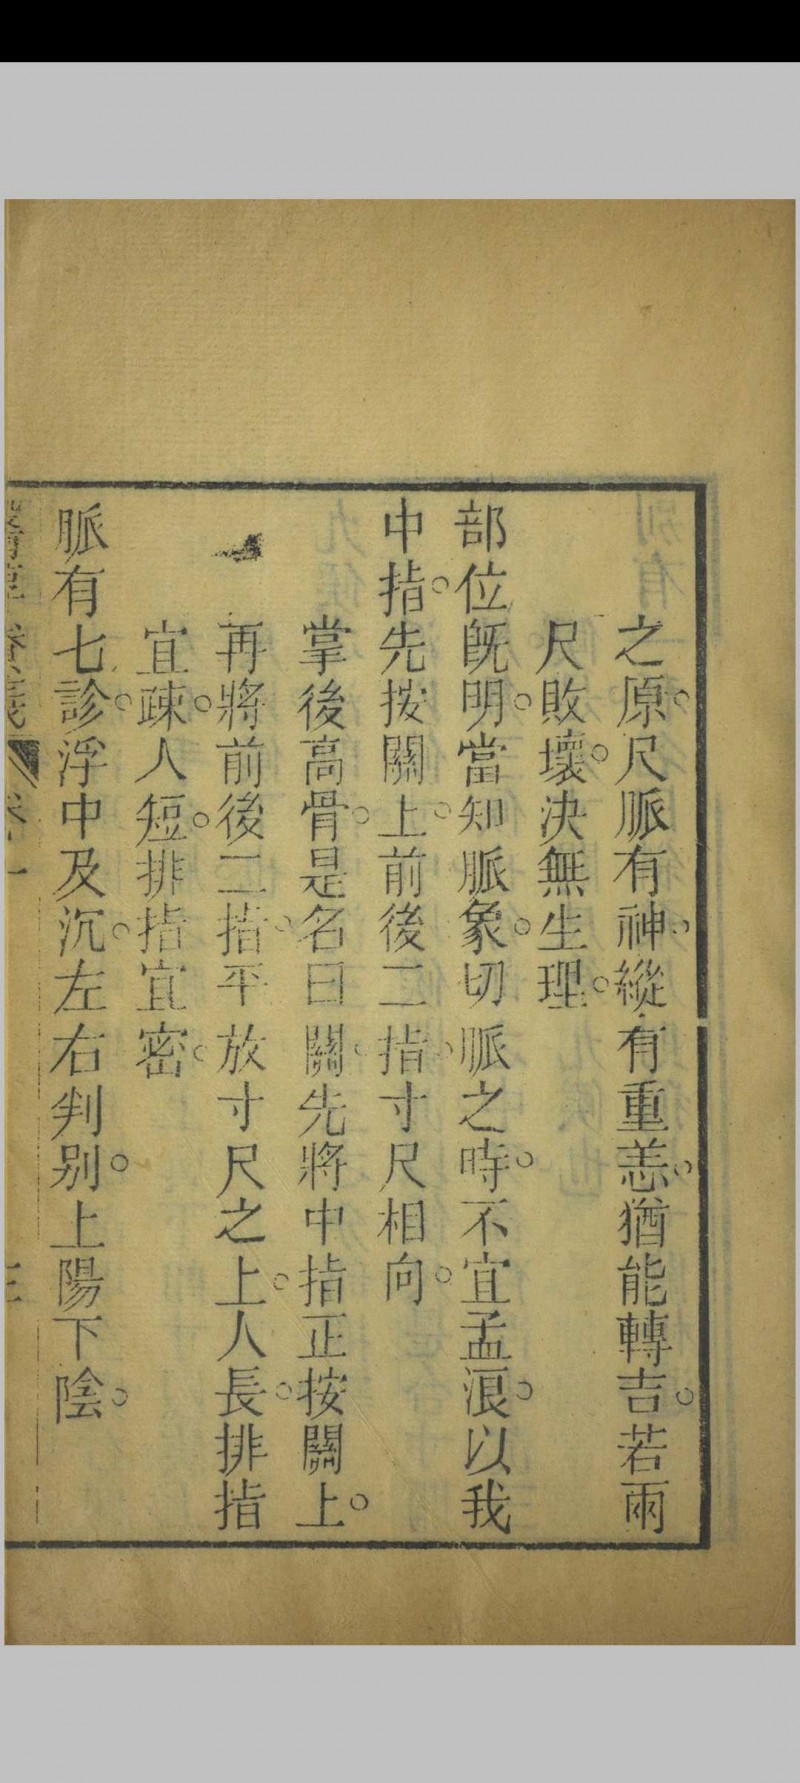 之原。尺脈有神。縱有重恙。猶能轉吉。若兩
尺敗壞。決無生理。
部位旣明。當知脈象。切脈之時。不宜孟浪。以我
中指。先按關上。前後二指。寸尺相向。
掌後高骨。是名曰關。先將中指正按關上。
再將前後二指。平放寸尺之上。人長。排指
宜疎。人短。排指宜密。
脈有七診。浮中及沉。左右判別。上陽下陰。